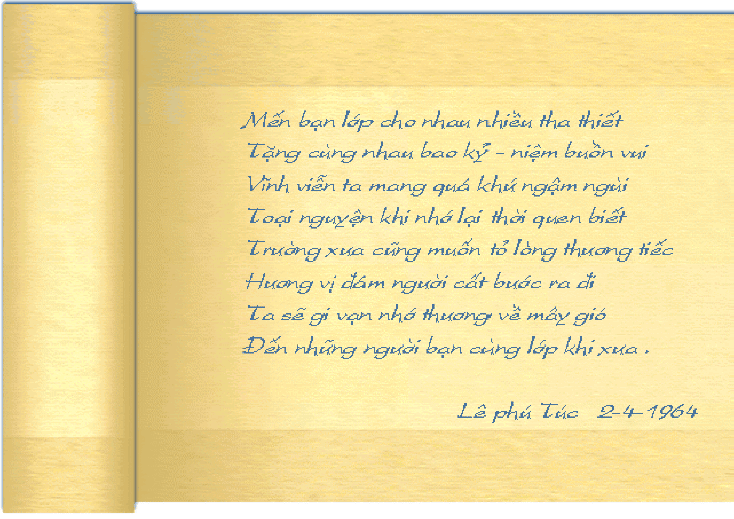 Mến bạn lớp cho nhau nhiều tha thiết
Tặng cùng nhau bao kỷ - niệm buồn vui
Vĩnh viễn ta mang quá khứ ngậm ngùi
Toại nguyện khi nhớ lại thời quen biết
Trường xưa cũng muốn tỏ lòng thương tiếc
Hương vị đám người cất bước ra đi
Ta sẽ gi vạn nhớ thương về mây gió
Đến những người bạn cùng lớp khi xưa .
Lê phú Túc 2-4-1964